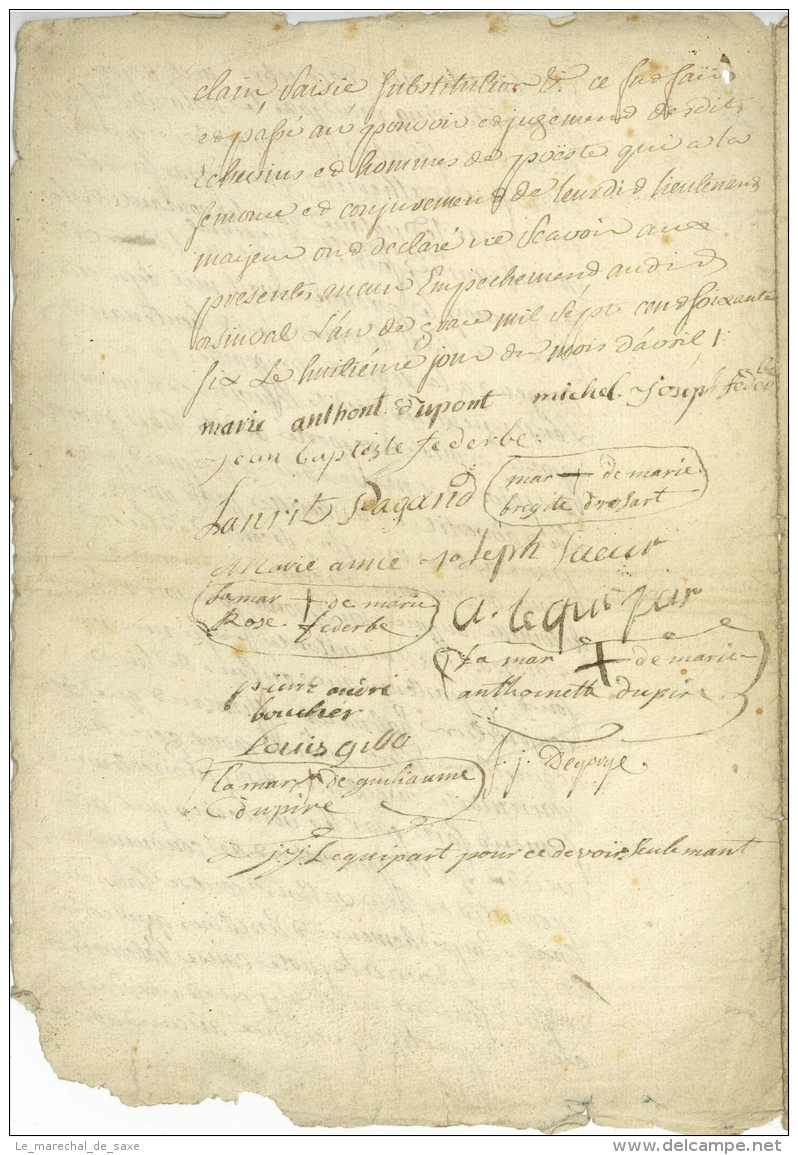 clain, saisie substitution &. ce fut fait
et passé au pouvoir et jugement desdits
Echevins et hommes de poëste qui a la
semonce et conjurement de leurdit lieutenant
majeur ont declaré ne scavoir aux
presents aucun Empechement, audit
orsinval L'an de grace mil sept cent soixante
six Le huitiéme jour du mois d'avril /:
marie anthont. dupont michel joseph federbe
jean baptiste federbe.
Pagand mar + de marie
bregite drosart
Marie anne joseph sueur
la mar + de marie
Rose federbe a. lequipar
la mar + de marie
anthoinette dupire
pierre andré
boucher
Louis gibo
f. j. Degouye.
la mar + de guiliaume
dupire
j. j. Lequipart pour ce devoir Seulemant
Le_marechal_de_saxe
delcampe.net